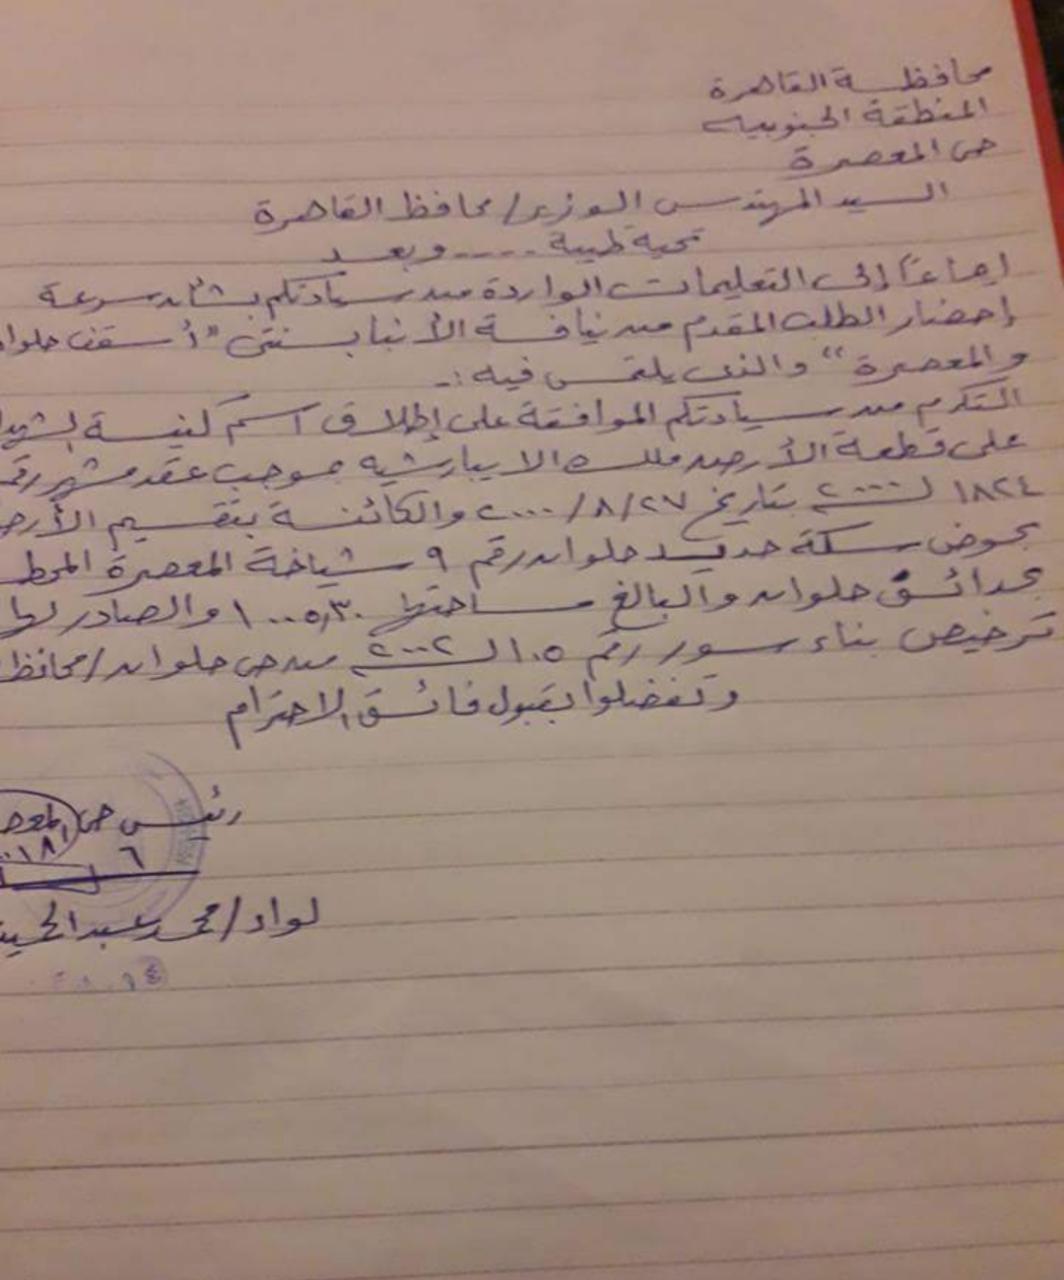 محافظة القاهرة
المنطقة الجنوبية
حى المعصرة
السيد المهندس الوزير/ محافظ القاهرة
تحية طيبة ..... وبعد
إيماءً إلى التعليمات الواردة من سيادتكم بشأن سرعة
إحضار الطلب المقدم من نيافة الأنبا بسنتى "أسقف حلوان
والمعصرة" والذى يلتمس فيه :-
التكرم من سيادتكم الموافقة على إطلاق اسم كنيسة
على قطعة الأرض ملك الايبارشيه بموجب عقد مشهر رقم
١٨٢٤ لـ ٢٠٠٠ بتاريخ ٢٠٠٠/٨/٢٧ والكائنة بتقسيم الأرض
بحوض سكة حديد حلوان رقم ٩ شياخة المعصرة المحطة
بحدائق حلوان والبالغ مساحتها ١٠٠٥,٣٠ والصادر لها
ترخيص بناء سور رقم ١٠٥ لـ ٢٠٠٢ من حى حلوان/محافظة
وتفضلوا بقبول فائق الاحترام
رئيس حى المعصرة
لواء/محمد عبد